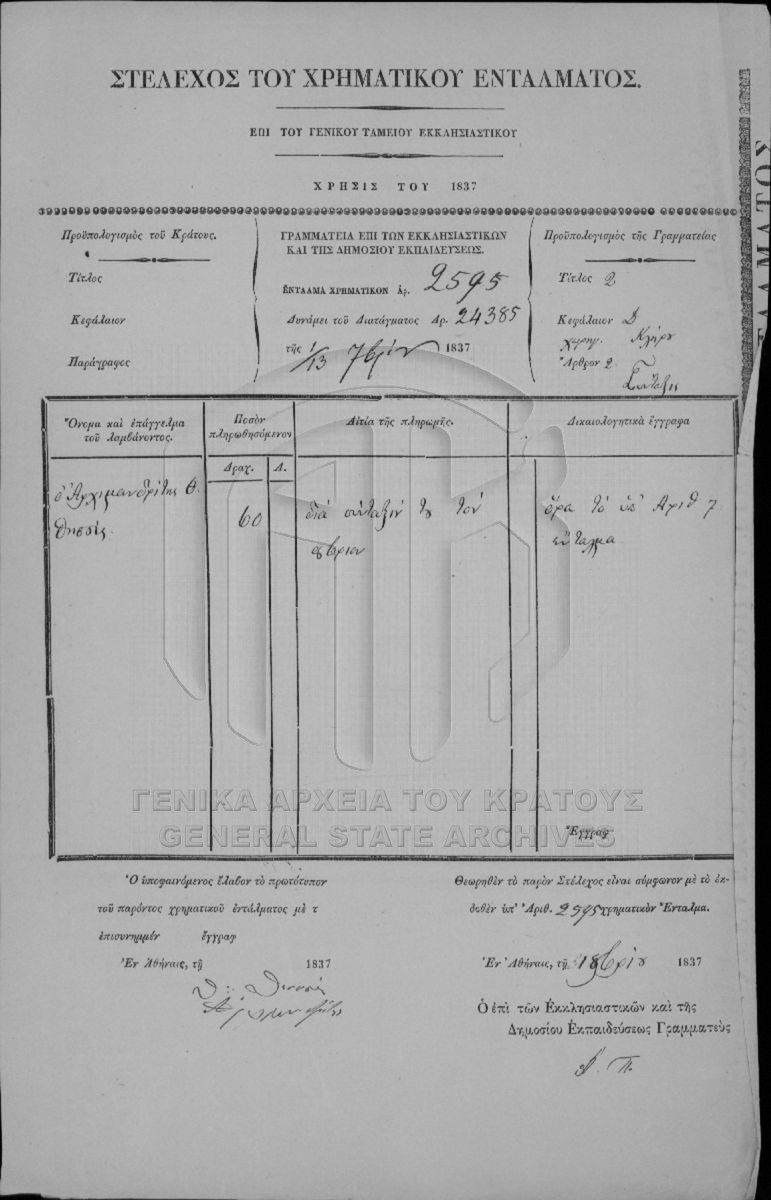 ΣΤΕΛΕΧΟΣ ΤΟΥ ΧΡΗΜΑΤΙΚΟΥ ΕΝΤΑΛΜΑΤΟΣ.
ΕΠΙ ΤΟΥ ΓΕΝΙΚΟΥ ΤΑΜΕΙΟΥ ΕΚΚΛΗΣΙΑΣΤΙΚΟΥ
ΧΡΗΣΙΣ ΤΟΥ 1837
Προϋπολογισμὸς τοῦ Κράτους.
Τίτλος
Κεφάλαιον
Παράγραφος
ΓΡΑΜΜΑΤΕΙΑ ΕΠΙ ΤΩΝ ΕΚΚΛΗΣΙΑΣΤΙΚΩΝ
ΚΑΙ ΤΗΣ ΔΗΜΟΣΙΟΥ ΕΚΠΑΙΔΕΥΣΕΩΣ.
ΕΝΤΑΛΜΑ ΧΡΗΜΑΤΙΚΟΝ Ἀρ. 2595
Δυνάμει τοῦ Διατάγματος Ἀρ. 24385
τῆς 1/13 7βρίου 1837
Προϋπολογισμὸς τῆς Γραμματείας
Τίτλος 2
Κεφάλαιον Δ
χορηγ. Κλήρου
Ἄρθρον 2.
Σύνταξις
Ὄνομα καὶ ἐπάγγελμα
τοῦ λαμβάνοντος.
Ποσὸν
πληρωθησόμενον
Δραχ. Λ.
Αἰτία τῆς πληρωμῆς.
Δικαιολογητικὰ ἔγγραφα
ὁ Ἀρχιμανδρίτης Θ.
60
διὰ σύνταξίν του τὸν
8βριον
ὅρα τὸ ὑπ' Ἀριθ 7
ἔνταλμα
ΓΕΝΙΚΑ ΑΡΧΕΙΑ ΤΟΥ ΚΡΑΤΟΥΣ
GENERAL STATE ARCHIVES
Ἔγγραφ
Ὁ ὑποφαινόμενος ἔλαβον τὸ πρωτότυπον
τοῦ παρόντος χρηματικοῦ ἐντάλματος μὲ τ
ἐπισυνημμέν ἔγγραφ
Ἐν Ἀθήναις, τῇ 1837
Θεωρηθὲν τὸ παρὸν Στέλεχος εἶναι σύμφωνον μὲ τὸ ἐκ-
δοθὲν ὑπ' Ἀριθ. 2595 χρηματικὸν Ἔνταλμα.
Ἐν Ἀθήναις, τῇ 1 8βρίου 1837
Ὁ ἐπὶ τῶν Ἐκκλησιαστικῶν καὶ τῆς
Δημοσίου Ἐκπαιδεύσεως Γραμματεὺς
Α. Π.